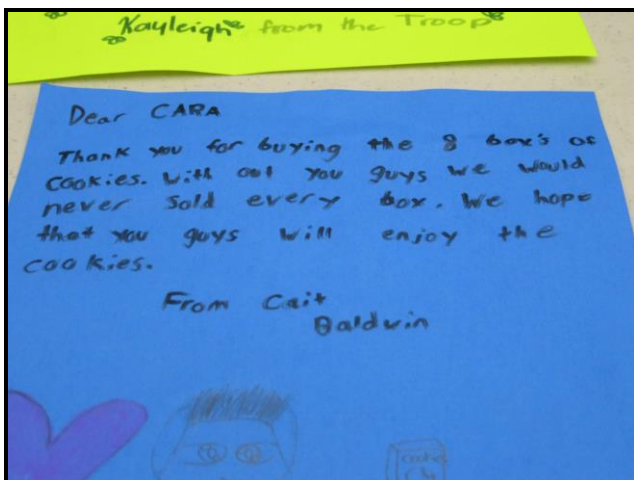 Kayleigh from the Troop
Dear CARA
Thank you for buying the 8 box's of
cookies. With out you guys we would
never sold every box. We hope
that you guys will enjoy the
cookies.
From Cait
Baldwin
Cookie